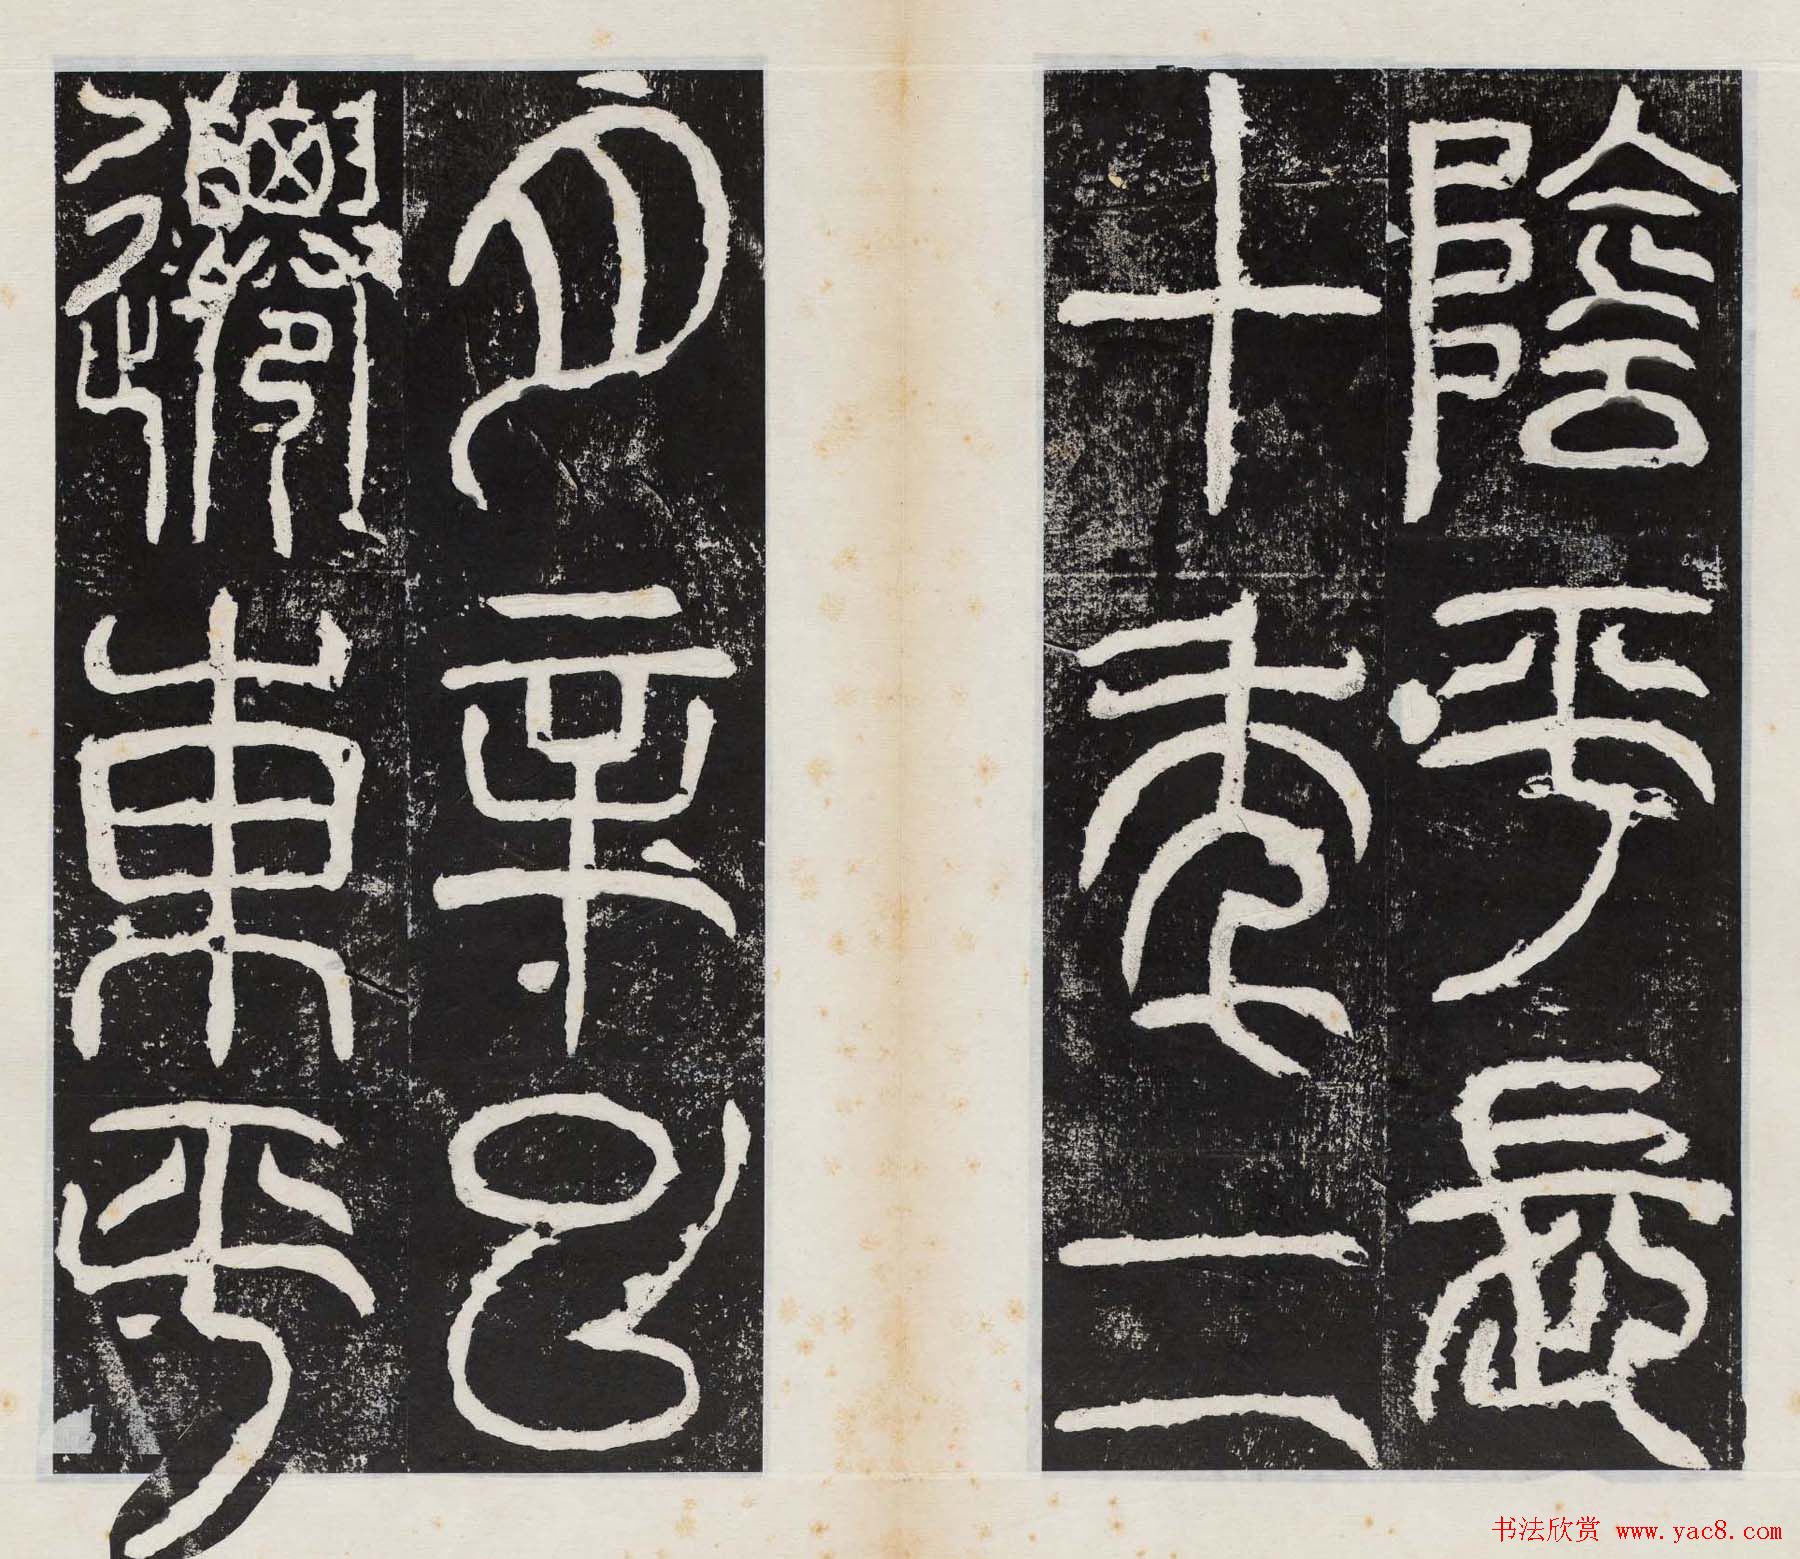 陰平長
十年二
月辛巳
遷東平
书法欣赏 www.yac8.com